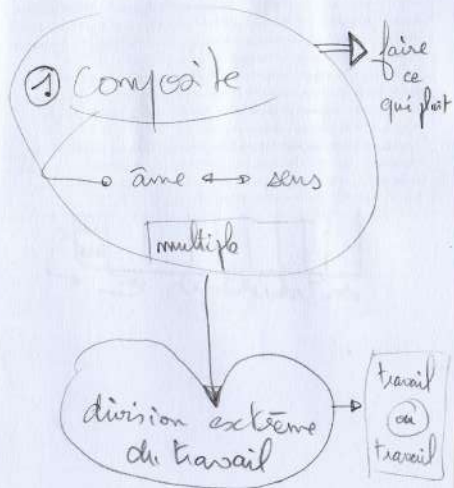 ① Composite
faire
ce
qui plaît
âme ↔ sens
multiple
division extrême
du travail
travail
où
travail